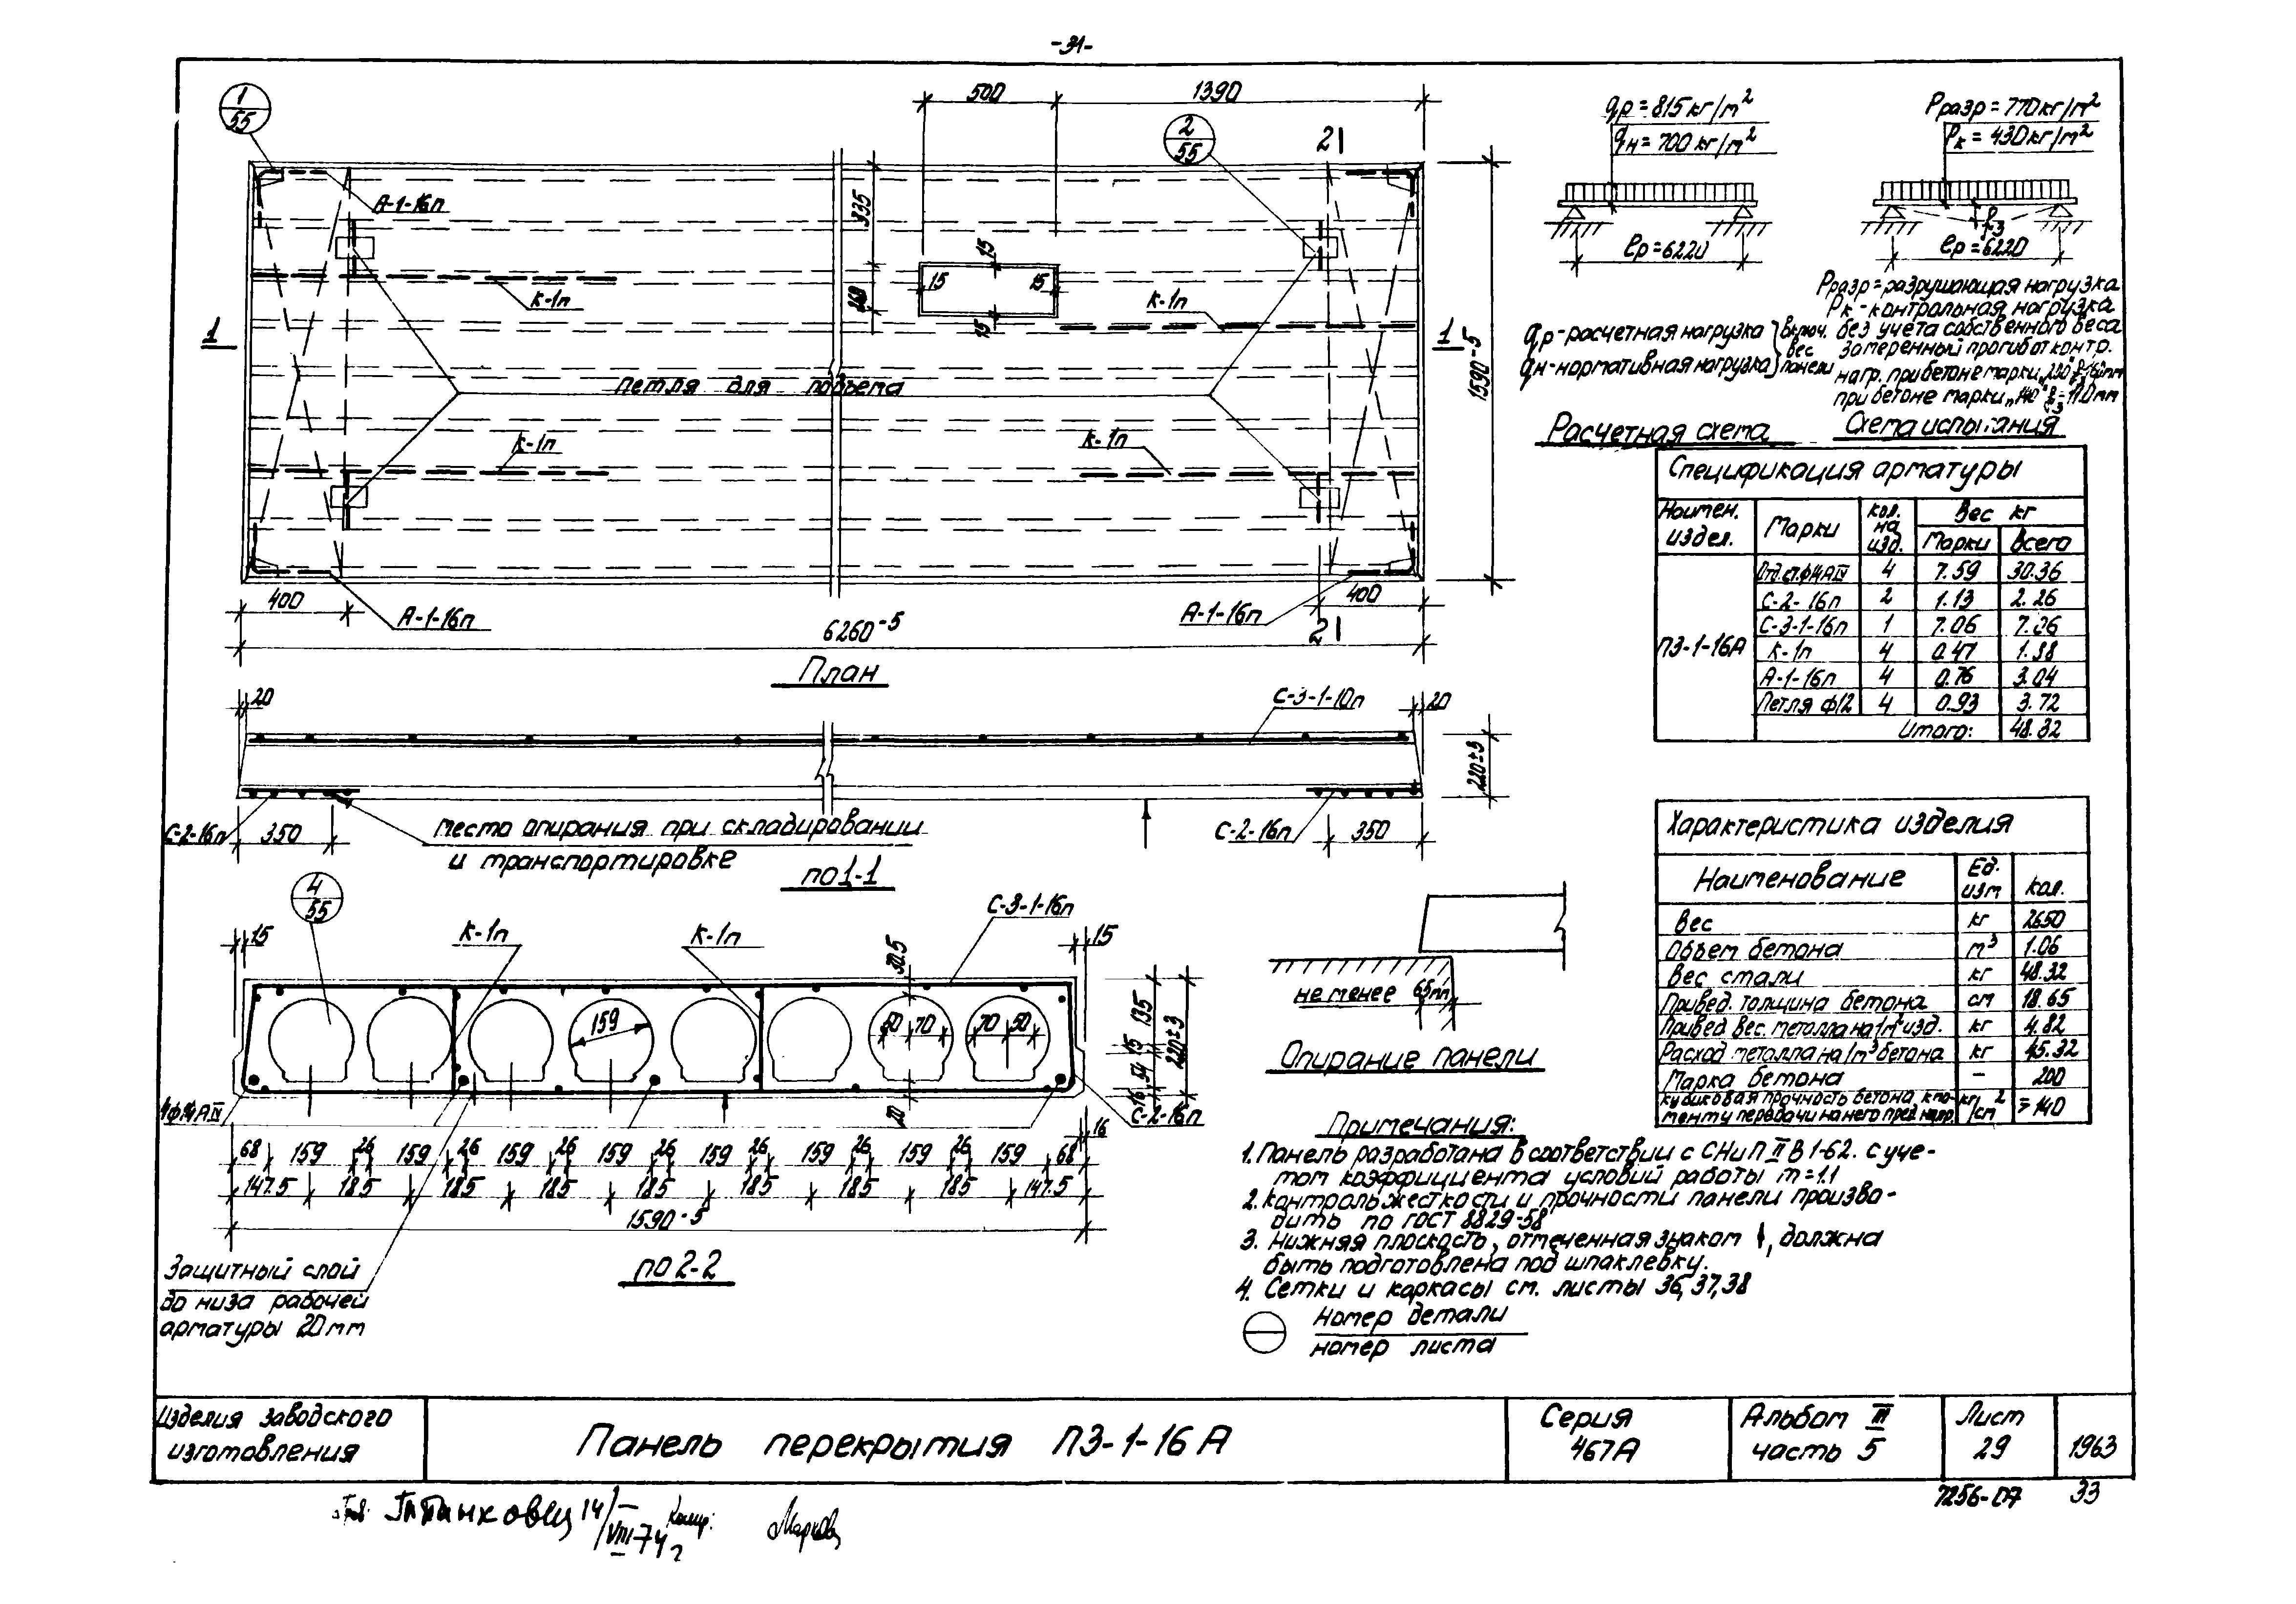 -31-
1
55
500
1390
2
55
2
А-1-16п
335
15
15
15
260
15
К-1п
К-1п
1
1
1590-5
петля для подъема
К-1п
К-1п
400
А-1-16п
А-1-16п
400
6260-5
2
План
qр=815кг/м²
qн=700кг/м²
ℓр=6220
Рразр=770кг/м²
Рк=430кг/м²
f₃
ℓр=6220
Рразр=разрушающая нагрузка
Рк-контрольная нагрузка
без учета собственного веса
замеренный прогиб от контр.
нагр. при бетоне марки
при бетоне марки „140"
qр-расчетная нагрузка
qн-нормативная нагрузка
включ.
вес
панели
Расчетная схема
Схема испытания
Спецификация арматуры
Наимен. издел. Марки кол. на изд. Вес кг
Марки Всего
П3-1-16А
Отд.ст.ф14АIV 4 7.59 30.36
С-2-16п 2 1.13 2.26
С-3-1-16п 1 7.06 7.06
К-1п 4 0.47 1.88
А-1-16п 4 0.76 3.04
Петля ф12 4 0.93 3.72
Итого: 48.32
20
С-3-1-10п
20
220±3
С-2-16п
350
место опирания при складировании
и транспортировке
С-2-16п
350
по 1-1
Характеристика изделия
Наименование Ед. изм кол.
Вес кг 2650
Объем бетона м³ 1.06
Вес стали кг 48.32
Привед. толщина бетона см 18.65
Привед. вес. металла на 1м² изд. кг 4.82
Расход металла на 1м³ бетона кг 45.32
Марка бетона - 200
кубиковая прочность бетона к мо-
менту передачи на него пред. напр. кг/см² ⩾140
4
55
15
К-1п
К-1п
С-3-1-16п
15
30.5
159
50
70
70
50
135
15
54
16
220±3
20
4ф14АIV
С-2-16п
16
68 159 26 159 26 159 26 159 26 159 26 159 26 159 26 159 68
147.5 185 185 185 185 185 185 185 147.5
1590-5
Защитный слой
до низа рабочей
арматуры 20мм
по 2-2
не менее 65мм
Опирание панели
Примечания:
1. Панель разработана в соответствии с СНиП II В 1-62. с уче-
том коэффициента условий работы m=1.1
2. Контроль жесткости и прочности панели произво-
дить по ГОСТ 8829-58
3. Нижняя плоскость, отмеченная знаком , должна
быть подготовлена под шпаклевку.
4. Сетки и каркасы см. листы 36,37,38
Номер детали
номер листа
Изделия заводского
изготовления
Панель перекрытия П3-1-16А
Серия
467А
Альбом III
часть 5
Лист
29
1963
7256-07
33
14/VIII-74г